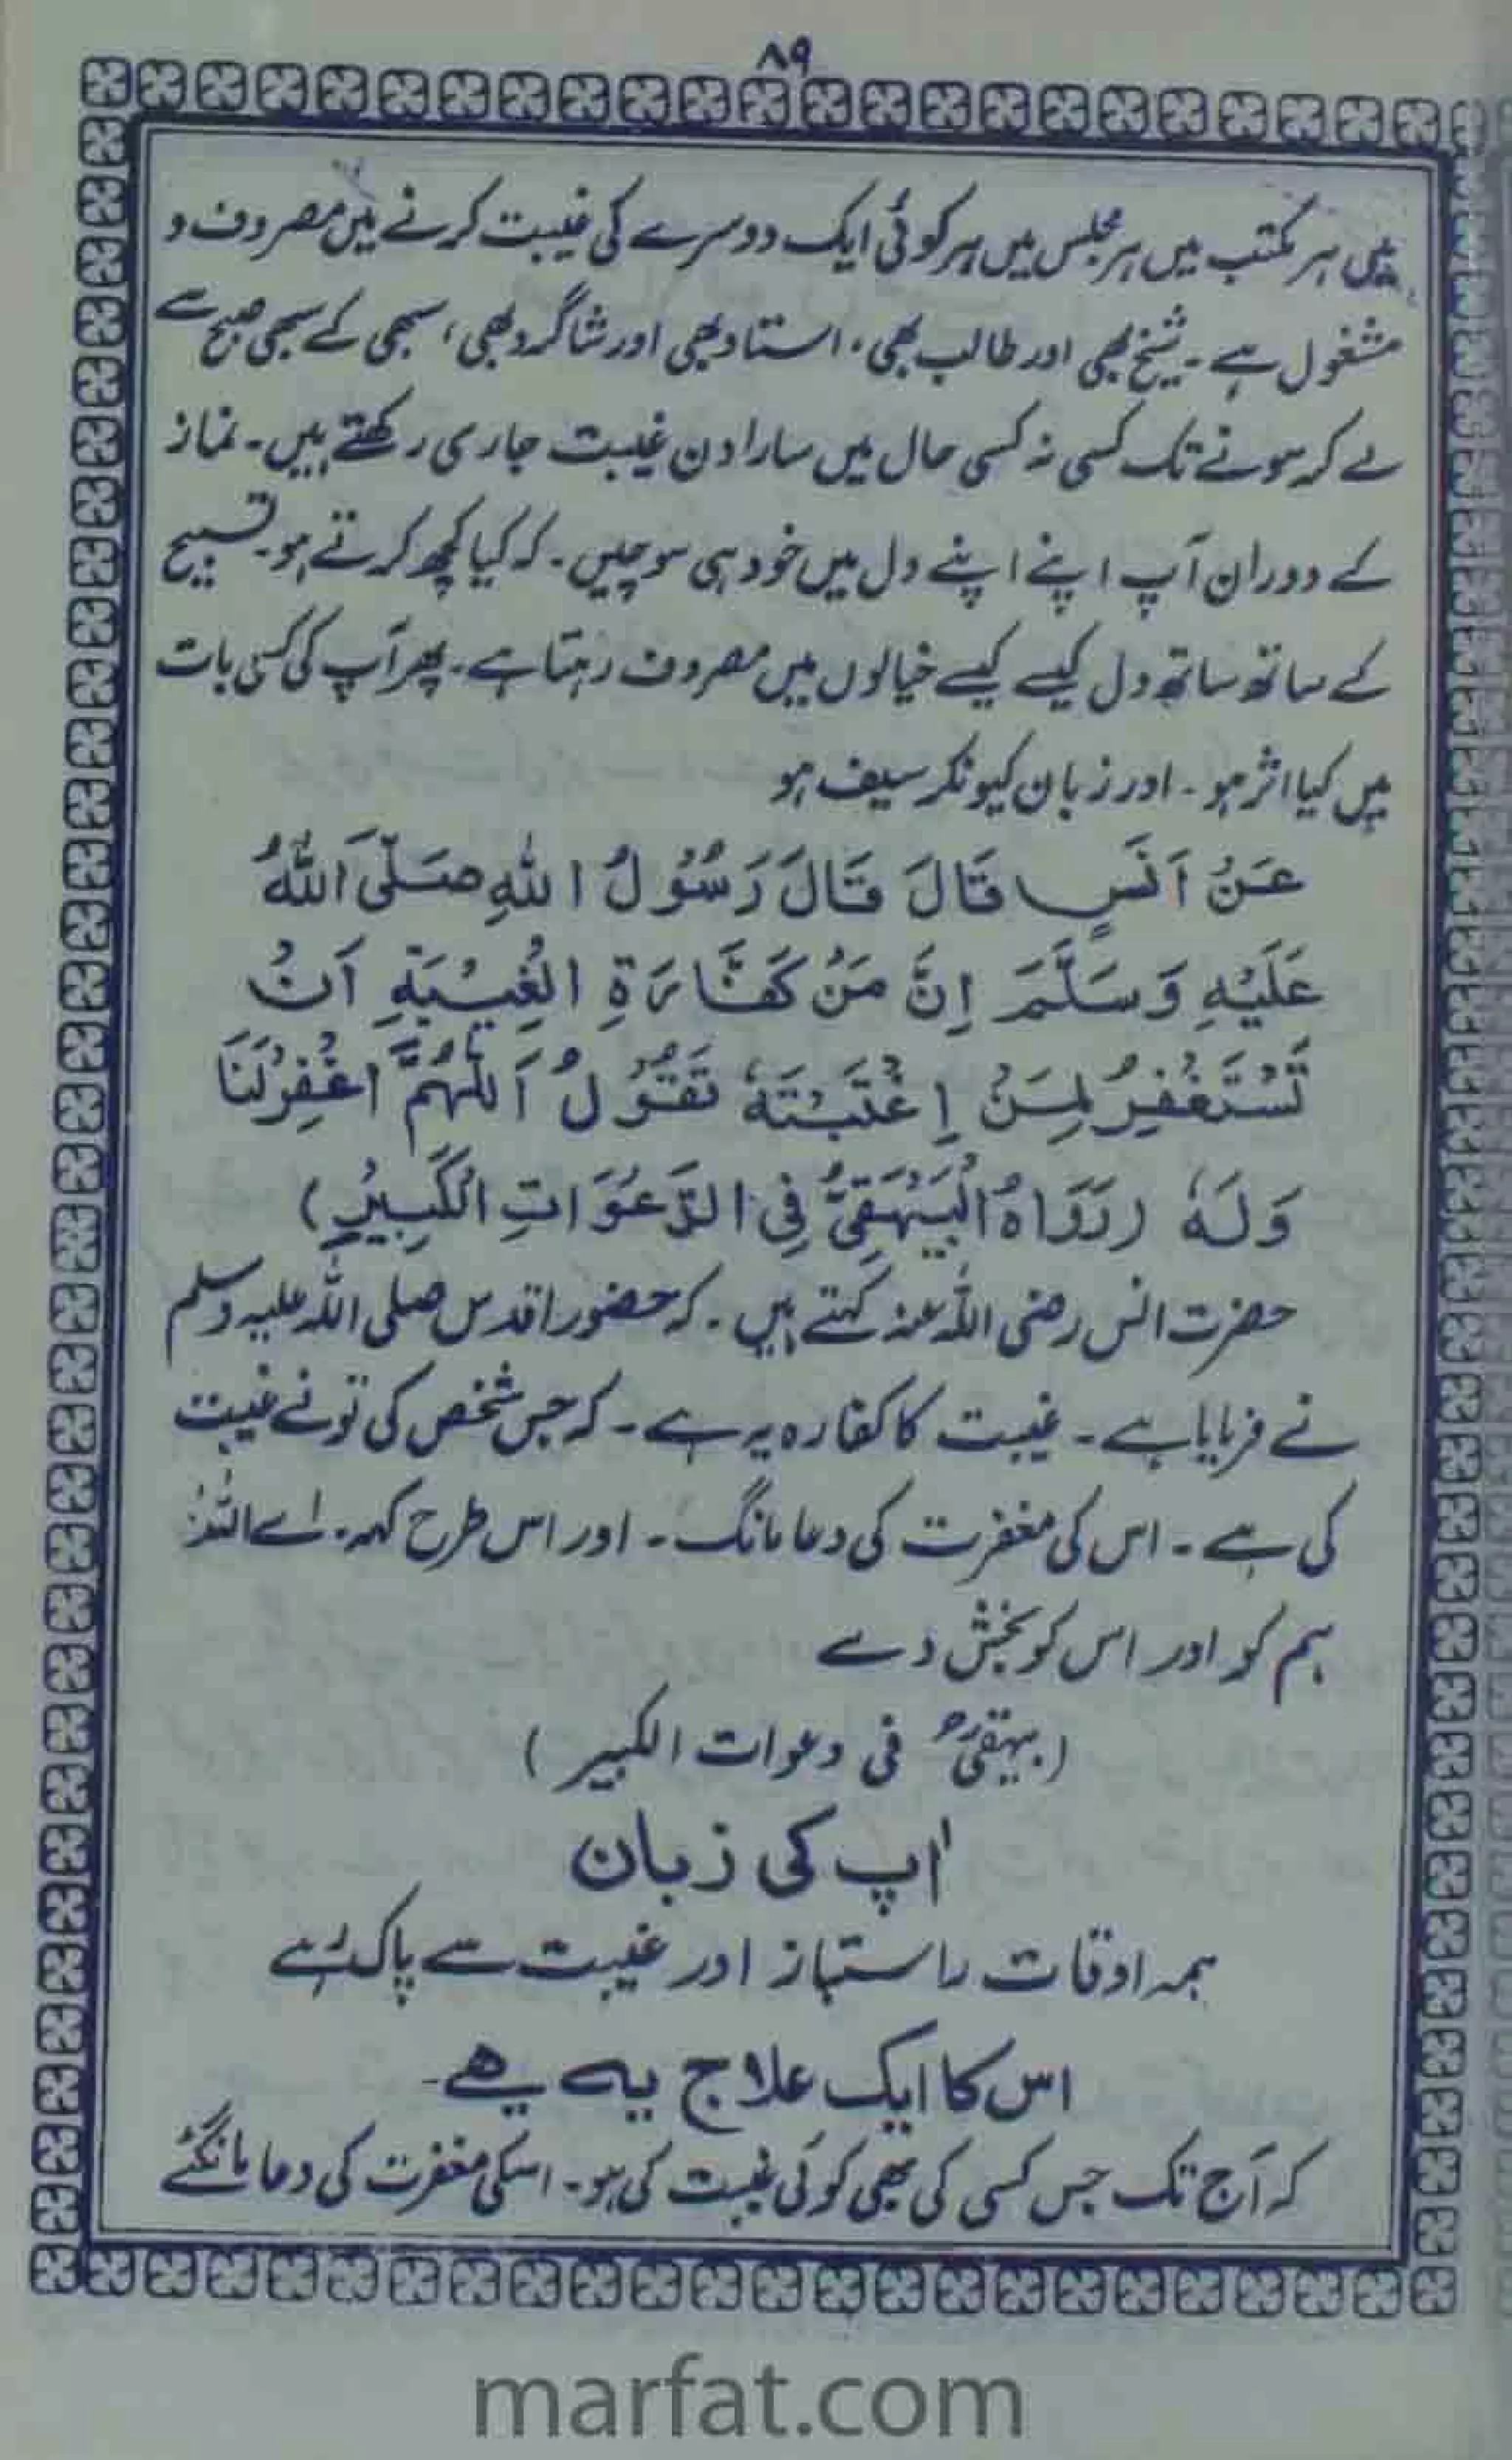 ۸۹
ہیں ہر مکتب میں ہر مجلس میں ہر کوئی ایک دوسرے کی غیبت کرنے میں مصروف و
مشغول ہے ۔ شیخ بھی اور طالب بھی ، استاد بھی اور شاگرد بھی ، سبھی کے سبھی صبح سے
لے کر سونے تک کسی نہ کسی حال میں سارا دن غیبت جاری رکھتے ہیں ۔ نماز
کے دوران آپ اپنے اپنے دل میں خود ہی سوچیں ۔ کہ کیا کچھ کرتے ہو ۔ تسبیح
کے ساتھ ساتھ دل کیسے کیسے خیالوں میں مصروف رہتا ہے ۔ پھر آپ کی کسی بات
میں کیا اثر ہو ۔ اور زبان کیونکر سیف ہو
عَنْ اَنَسٍ قَالَ قَالَ رَسُوْلُ اللّٰهِ صَلَّى اللّٰهُ
عَلَيْهِ وَسَلَّمَ اِنَّ مَنْ كَفَّارَةِ الْغِيْبَةِ اَنْ
تَسْتَغْفِرُ لِمَنْ اِغْتَبْتَهٗ تَقُوْلُ اَللّٰهُمَّ اغْفِرْلَنَا
وَلَهٗ (رَوَاهُ الْبَيْهَقِيُّ فِي الدَّعَوَاتِ الْكَبِيْرِ)
حضرت انس رضی اللہ عنہ کہتے ہیں ۔ کہ حضور اقدس صلی اللہ علیہ وسلم
نے فرمایا ہے ۔ غیبت کا کفارہ یہ ہے ۔ کہ جس شخص کی تو نے غیبت
کی ہے ۔ اس کی مغفرت کی دعا مانگ ۔ اور اس طرح کہہ ۔ اے اللہ
ہم کو اور اس کو بخش دے
(بیہقیؒ فی دعوات الکبیر)
اٰپ کی زبان
ہمہ اوقات راستباز اور غیبت سے پاک رہے
اس کا ایک علاج یہ ہے ۔
کہ آج تک جس کسی کی بھی کوئی غیبت کی ہو ۔ اسکی مغفرت کی دعا مانگئے
marfat.com